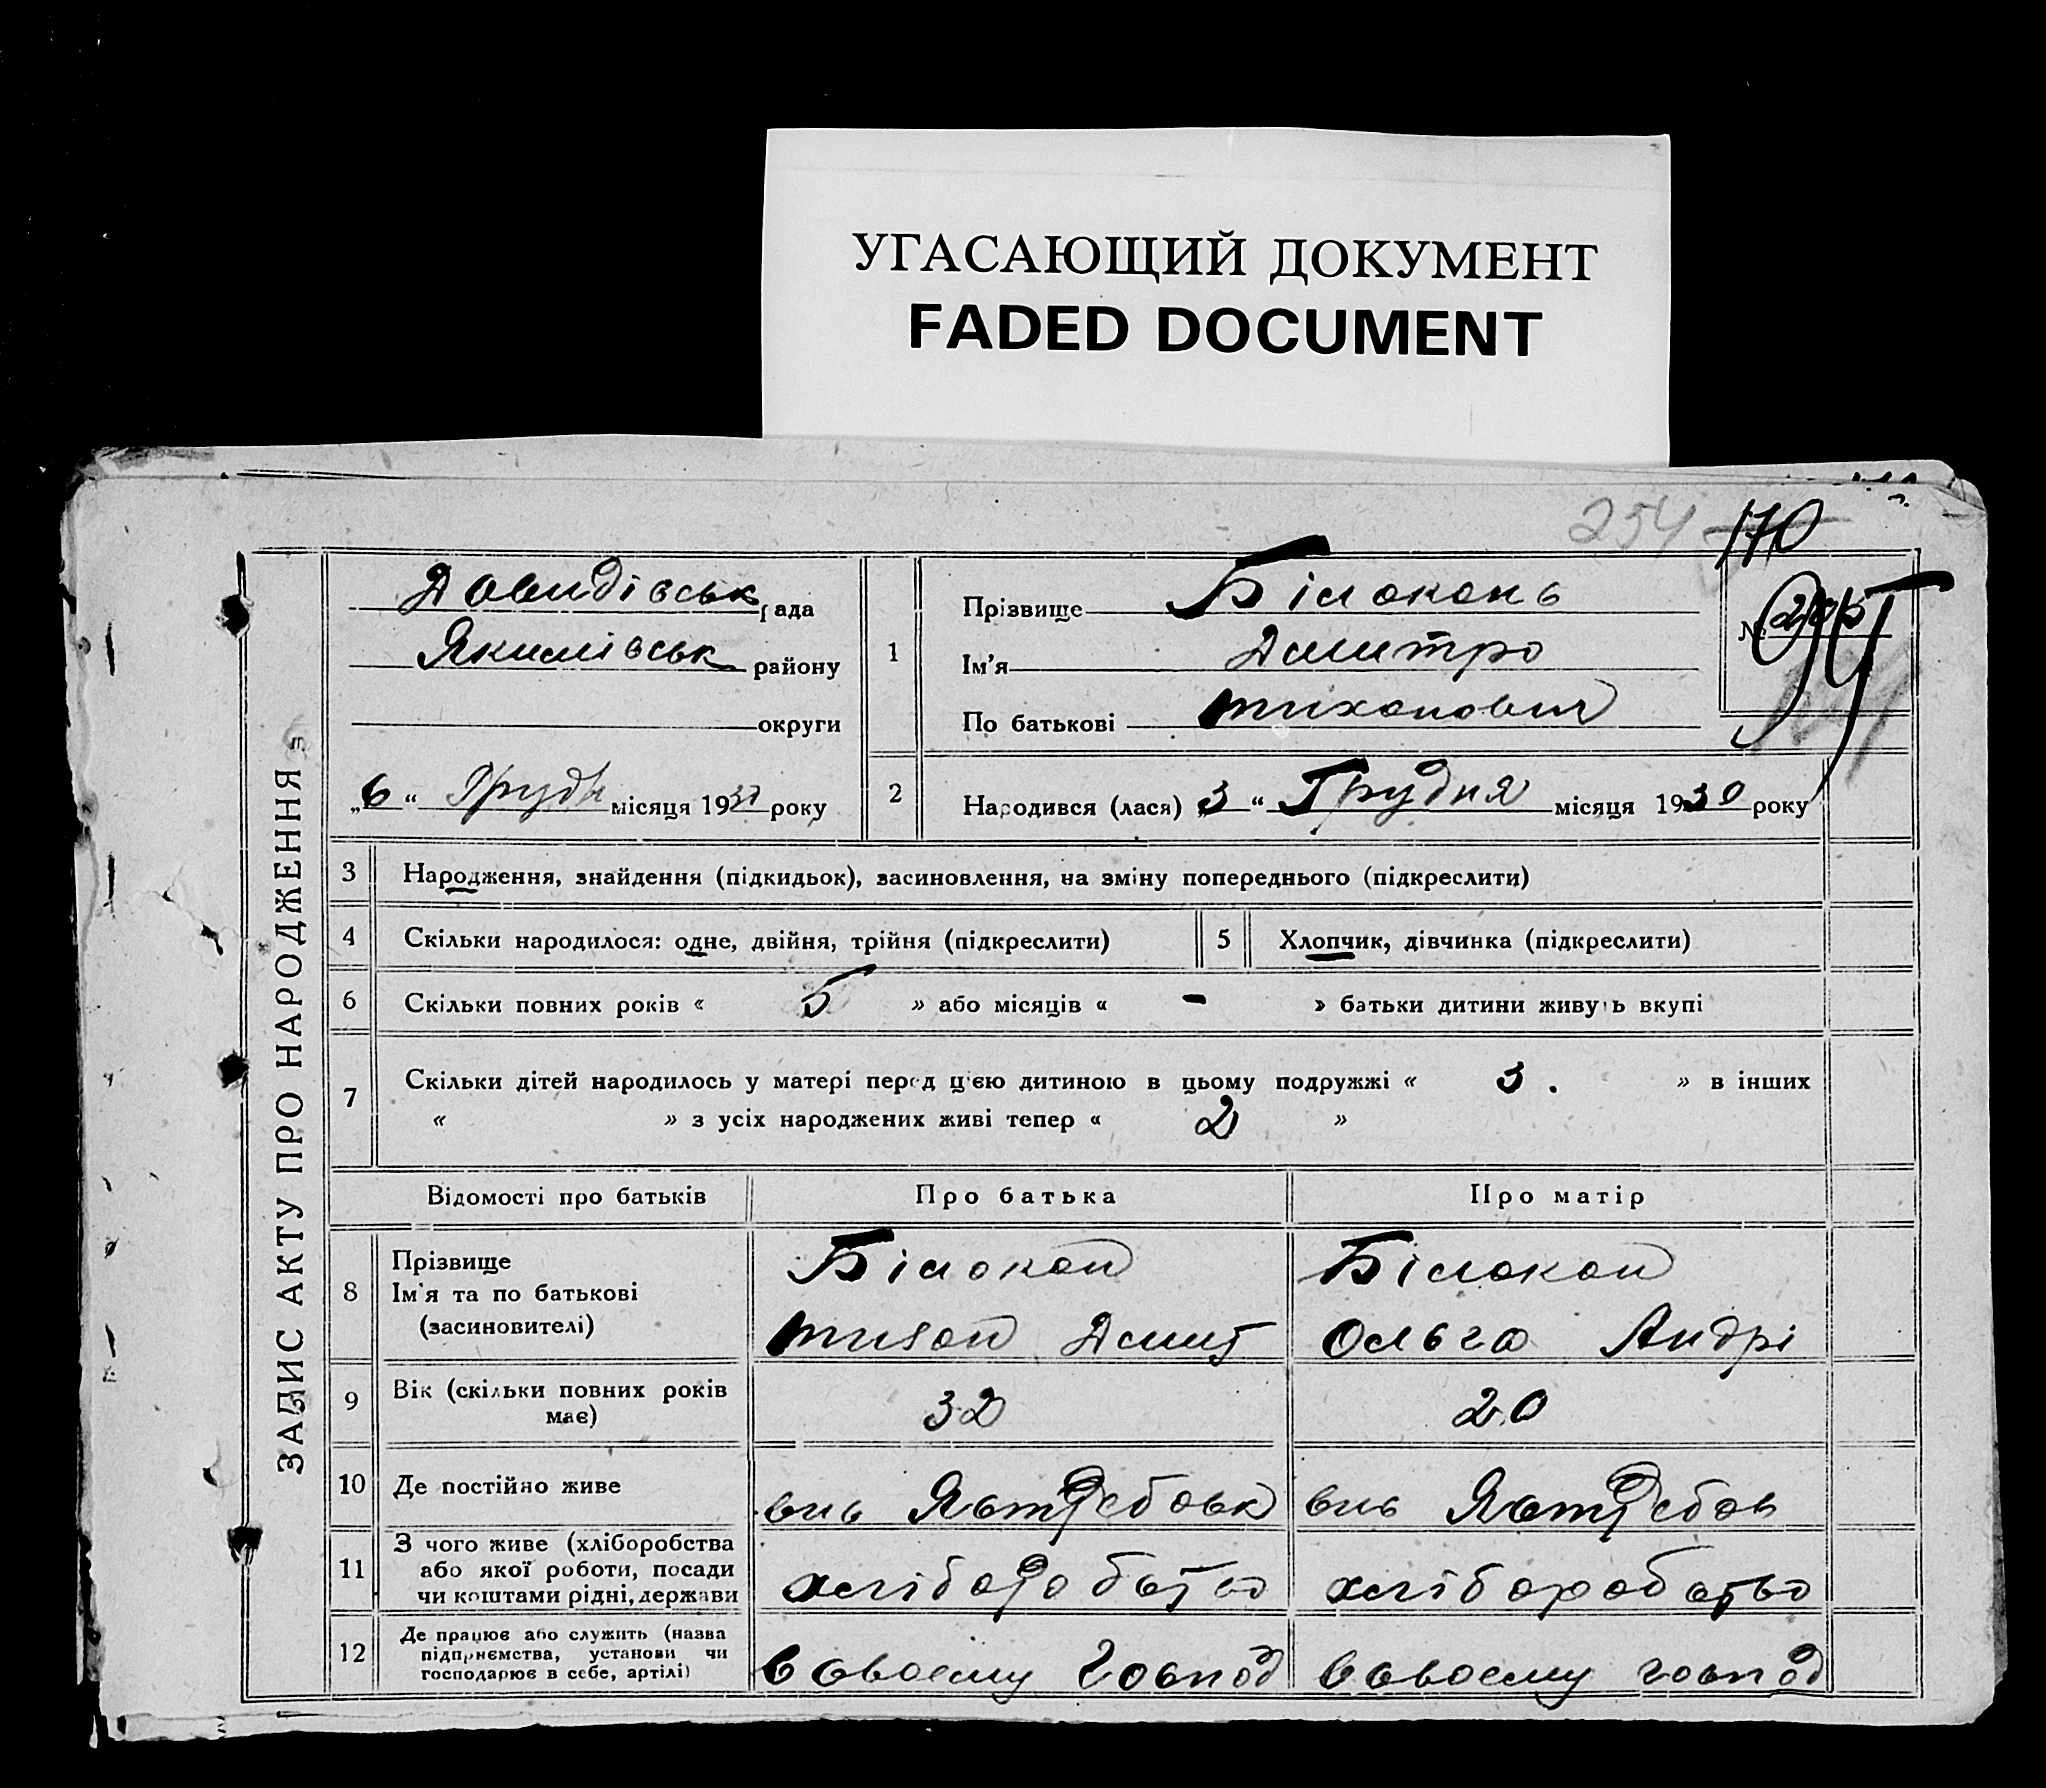 УГАСАЮЩИЙ ДОКУМЕНТ
FADED DOCUMENT
254 170
ЗАПИС АКТУ ПРО НАРОДЖЕННЯ
Давидівськ рада
Якимівськ району
округи
„6“ Грудн місяця 1930 року
1
Прізвище Білоконь
Ім'я Дмитро
По батькові Тихонович
№
2
Народився (лася) 3 “ Грудня місяця 1930 року
3 Народження, знайдення (підкидьок), засиновлення, на зміну попереднього (підкреслити)
4 Скільки народилося: одне, двійня, трійня (підкреслити) 5 Хлопчик, дівчинка (підкреслити)
6 Скільки повних років « 5 » або місяців « - » батьки дитини живуть вкупі
7 Скільки дітей народилось у матері перед цією дитиною в цьому подружжі « 3. » в інших
« » з усіх народжених живі тепер « 2 »
Відомості про батьків Про батька Про матір
8 Прізвище
Ім'я та по батькові
(засиновителі)
Білокон
Тихон Дмит
Білокон
Ольга Андрі
9 Вік (скільки повних років
має)
32 20
10 Де постійно живе
Ястребовк Ястребов
11 З чого живе (хліборобства
або якої роботи, посади
чи коштами рідні, держави
хліборобство хліборобство
12 Де працює або служить (назва
підприємства, установи чи
господарює в себе, артілі)
в своєму господ в своєму господ